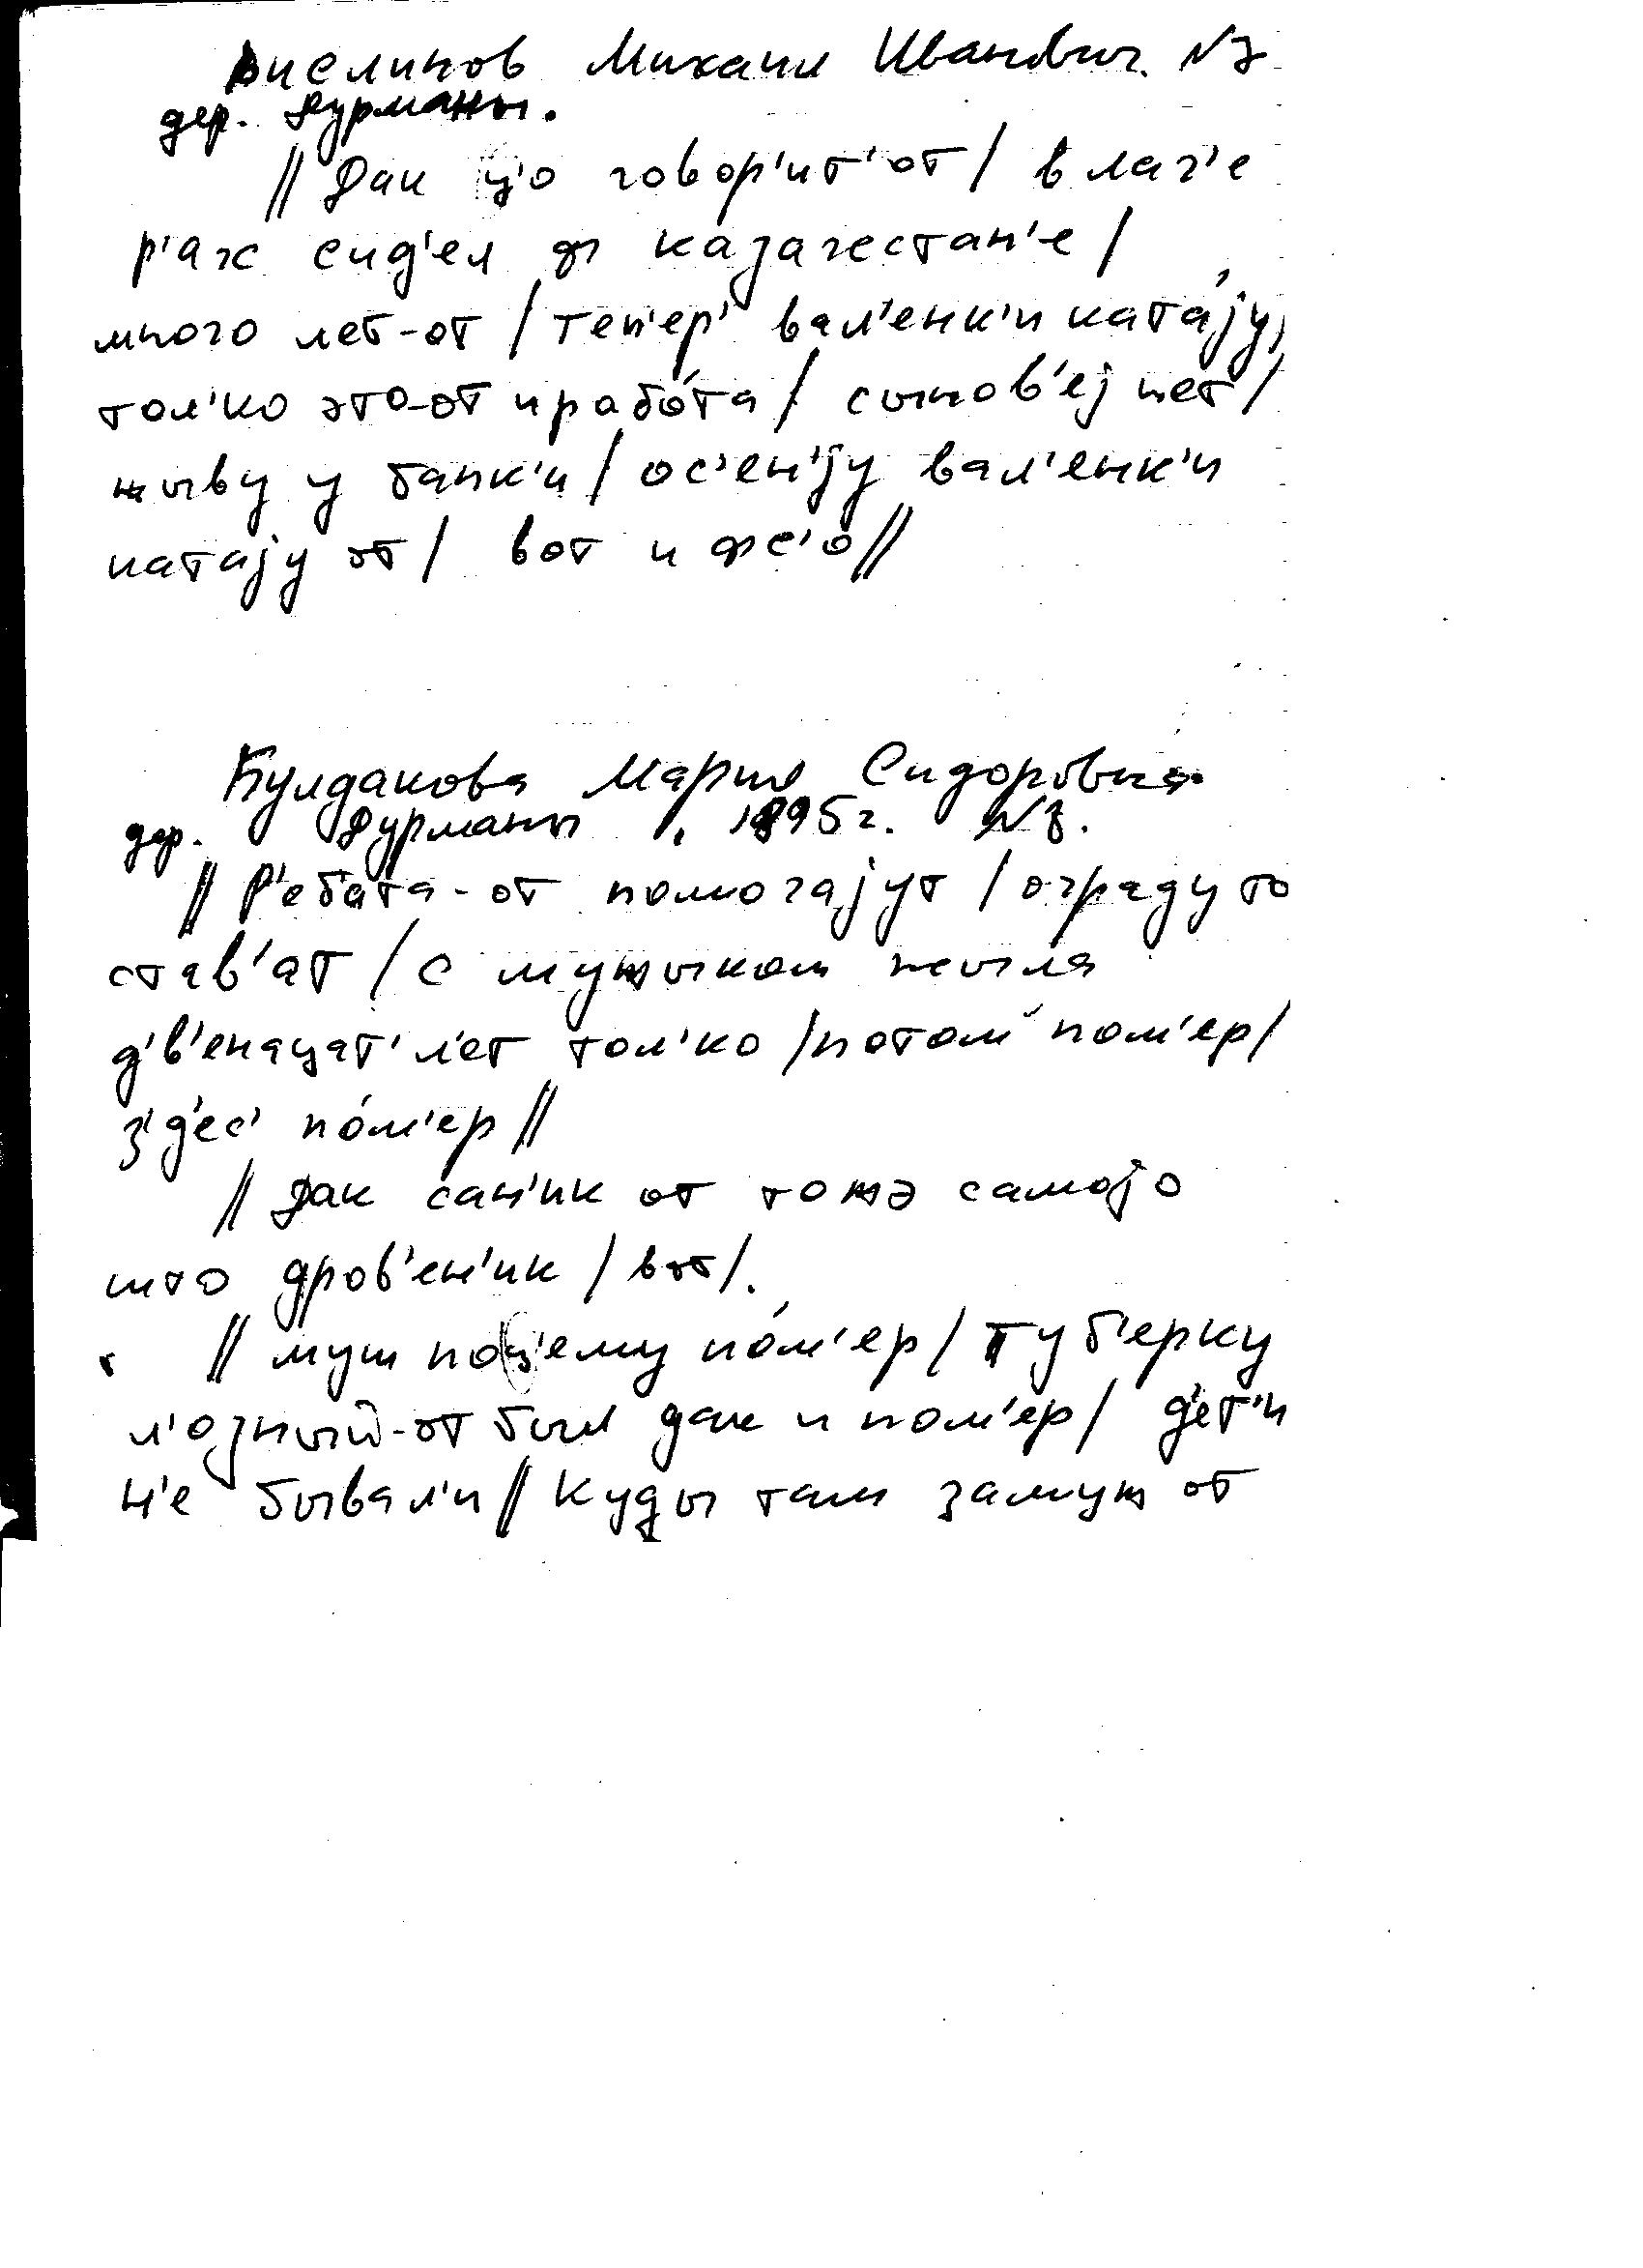 Кислицов Михаил Иванович. N3
дер. Дурманы.
// Дак ц'о говор'ит'-от / в лаг'е
р'ах сид'ел ф казахестан'е /
много лет-от / теп'ер' вал'енк'и ката́jу,
тол'ко это-от и рабо́та / сынов'еj нет /
жыву у бапк'и / ос'ен'jу вал'енк'и
катаjу от / вот и фс'о //
Булдакова Мария Сидоровна
дер. Дурманы, 1895г. N3.
// Р'еб'ата-от помогаjут / ограду то
став'ат / с мужыком жыла
д'в'енацат' л'ет тол'ко / потом пом'ер /
з'д'ес' по́м'ер //
// Дак сан'ик от тожэ самоjо
што дров'ен'ик / вот /.
// муш поц'ему по́м'ер / туб'ерку
л'озный-от был дак и пом'ер / д'ет'и
н'е бывал'и // куды там замуж от